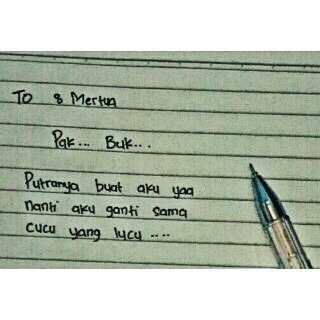 To 8 Mertua
Pak... Buk...
Putranya buat aku yaa
nanti aku ganti sama
cucu yang lucu ....